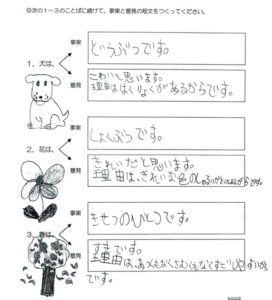 ◎次の1〜3のことばに続けて、事実と意見の短文をつくってください。
事実
どうぶつです。
1、犬は、
意見
こわいと思います。
理由ははくりょくがあるからです。
事実
しょくぶつです。
2、花は、
意見
きれいだと思います。
理由は、きれいな色の
からです。
事実
きせつのひとつです。
3、春は、
意見
すきです。
理由は、あつくもなくさむくもなくすごしやすいから
です。